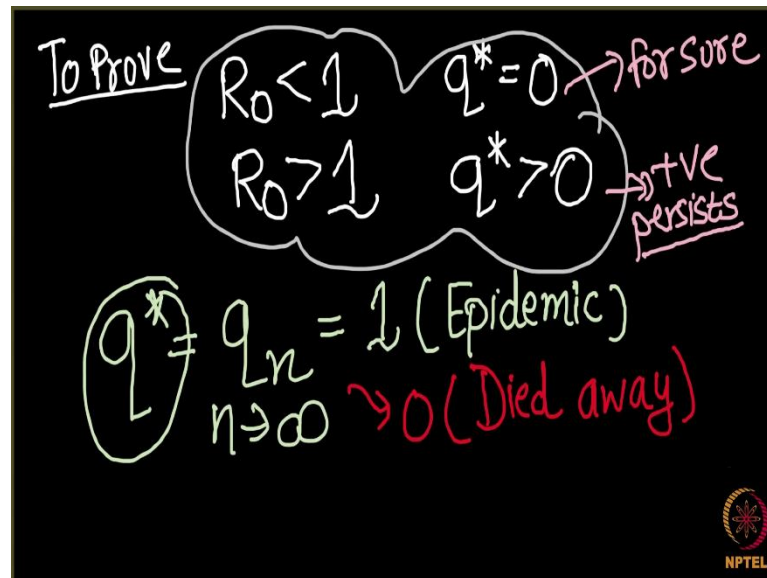 To Prove
R₀ < 1 q* = 0 → for sure
R₀ > 1 q* > 0 → +ve
persists
q* = qₙ = 1 (Epidemic)
n → ∞ ↘ 0 (Died away)
NPTEL